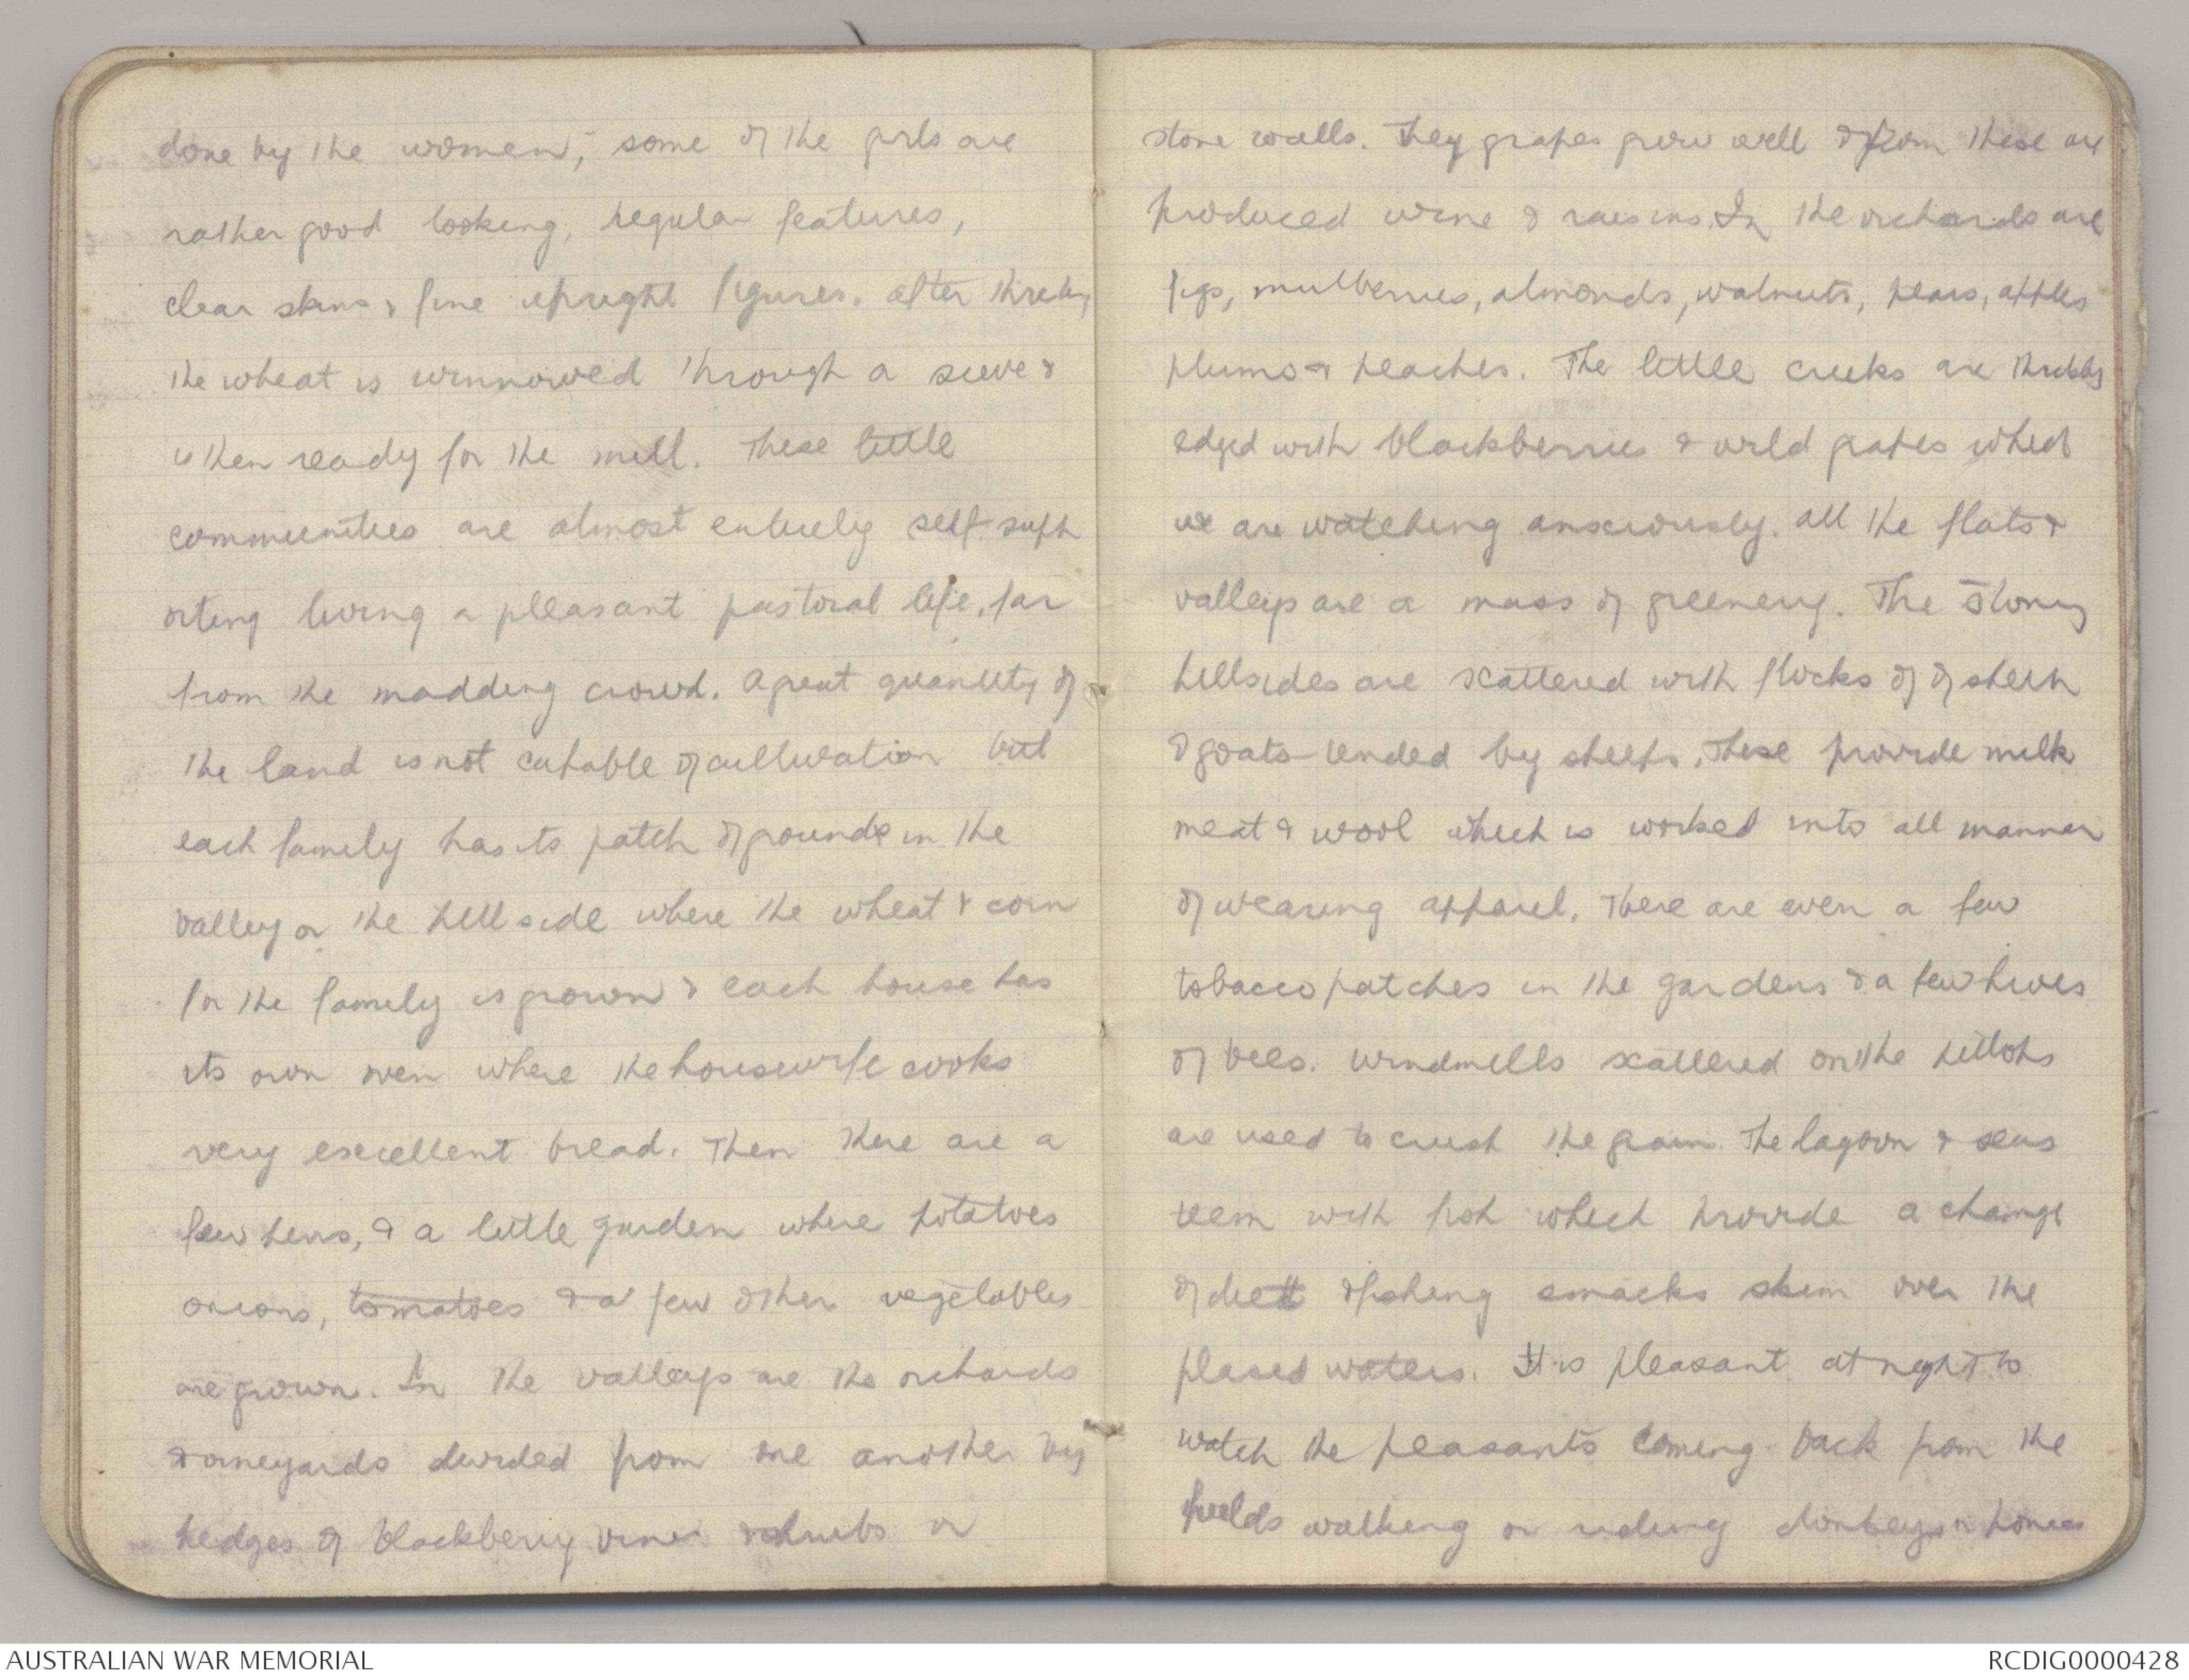 done by the women; some of the girls are
rather good looking, regular features,
clear skins & fine upright figures. After threshing
the wheat is winnowed through a sieve &
is then ready for the mill. These little
communities are almost entirely self supp
orting living a pleasant pastoral life, far
from the madding crowd. A great quantity of
the land is not capable of cultivation but
each family has its patch of ground in the
valley or the hill side where the wheat & corn
for the family is grown & each house has
its own oven where the housewife cooks
very excellent bread. Then there are a
few hens, & a little garden where potatoes
onions, tomatoes & a few other vegetables
are grown. In the valleys are the orchards
& vineyards divided from one another by
hedges of blackberry vines & shrubs or
stone walls. They grapes grow well & from these are
produced wine & raisins. In the orchards are
figs, mulberries, almonds, walnuts, pears, apples
plums & peaches. The little creeks are thickly
edged with blackberries & wild grapes which
we are watching anxiously. All the flats &
valleys are a mass of greenery. The stony
hillsides are scattered with flocks of of sheep
& goats tended by sheeps. These provide milk
meat & wool which is worked into all manner
of wearing apparel. There are even a few
tobacco patches in the gardens & a few hives
of bees. Windmills scattered on the hilltops
are used to crush the grain. The lagoon & seas
teem with fish which provide a change
of diett & fishing smacks skim over the
placed waters. It is pleasant at night to
watch the peasants coming back from the
fields walking or riding donkeys or ponies
AUSTRALIAN WAR MEMORIAL
RCDIG0000428